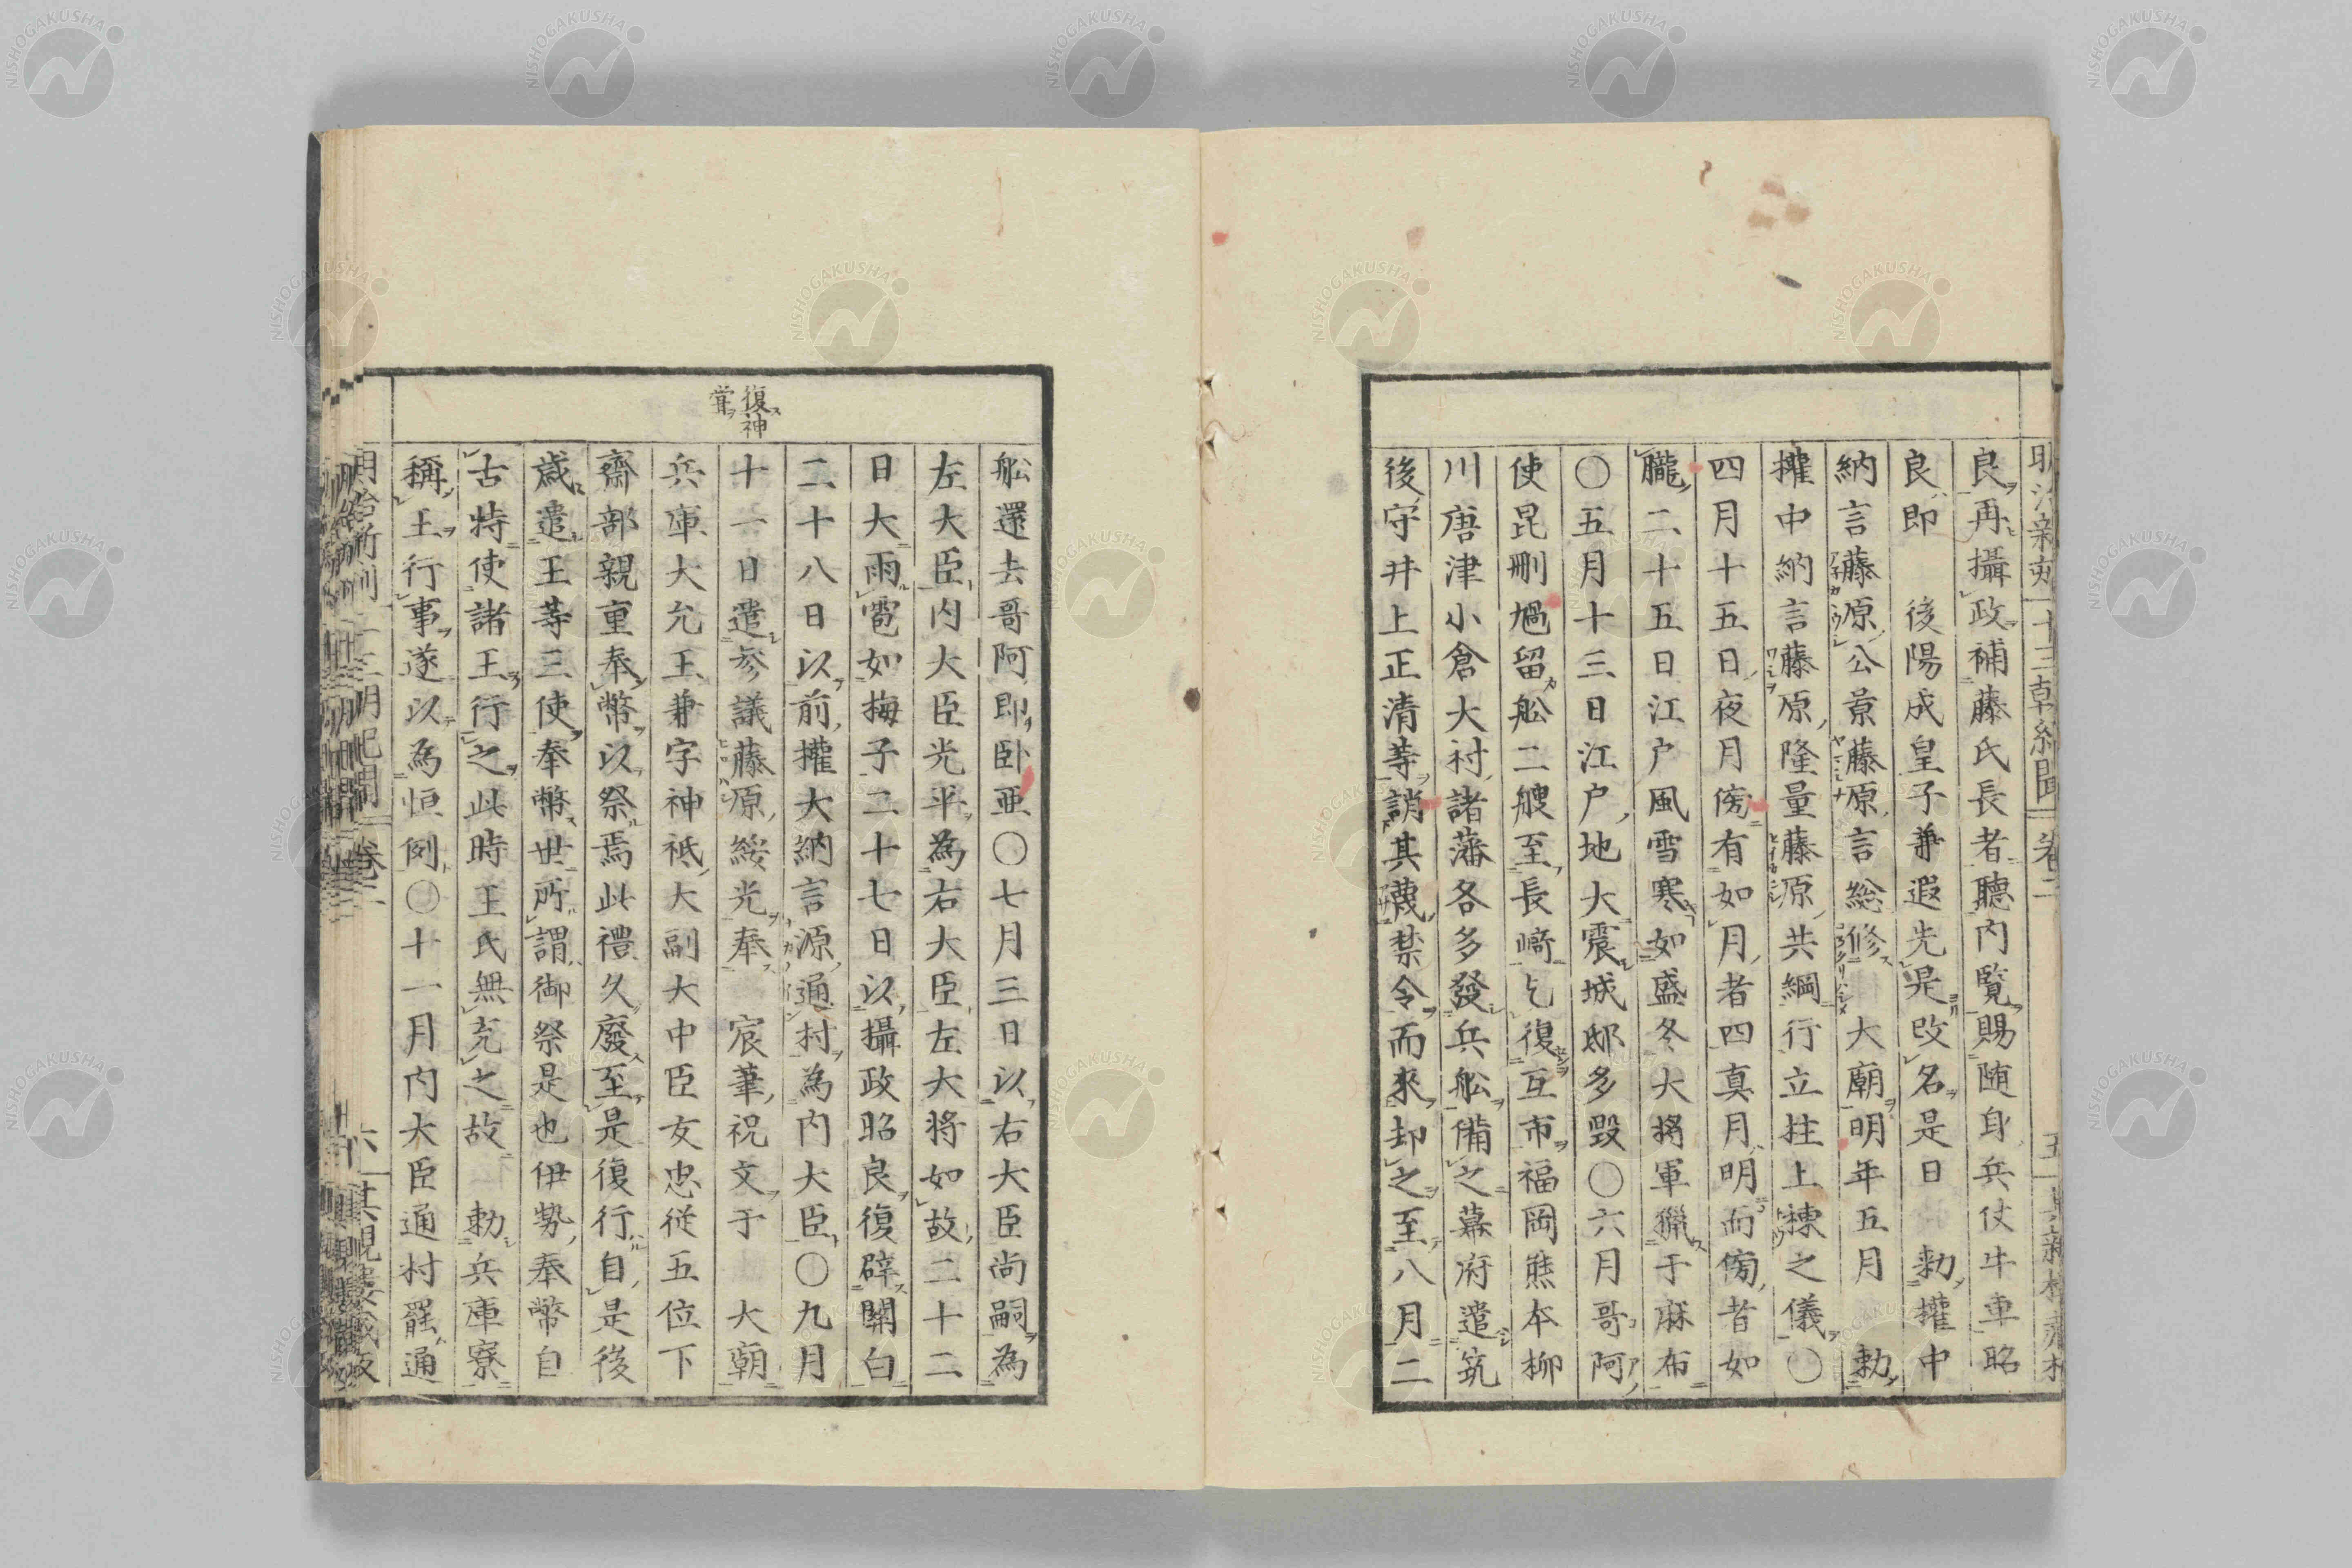 良再攝政補藤氏長者聽内覧賜随身兵仗牛車昭
良即　後陽成皇子兼遐先是改名是日　勅權中
納言藤原公景藤原言総修　大廟明年五月　勅
權中納言藤原隆量藤原共綱行立拄上棟之儀〇
四月十五日夜月傍有如月者四真月明而傍者如
朧二十五日江户風雪寒如盛冬大將軍獵于麻布
〇五月十三日江户地大震城邸多毀〇六月哥阿
使昆刪馗留舩二艘至長崎乞復互市福岡熊本柳
川唐津小倉大村諸藩各多發兵舩備之幕府遣筑
後守井上正清等誚其衊禁令而來却之至八月二
復神
甞
舩還去哥阿即卧亜〇七月三日以右大臣尚嗣為
左大臣内大臣光平為右大臣左大将如故二十二
日大雨雹如梅子二十七日以攝政昭良復辟關白
二十八日以前權大納言源通村為内大臣〇九月
十一日遣参議藤原綏光奉　宸筆祝文于　大朝
兵庫大允王兼字神祇大副大中臣友忠従五位下
齋部親重奉幣以祭焉此禮久廢至是復行自是後
歳遣王等三使奉幣世所謂御祭是也伊勢奉幣自
古特使諸王行之此時王氏無充之故　勅兵庫寮
稱王行事遂以為恒例〇十一月内大臣通村罷通